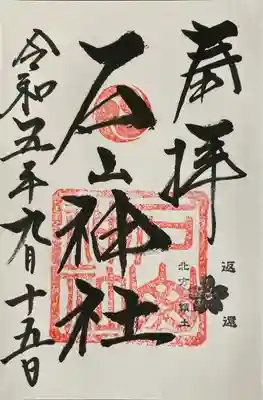 奉拝
北方領土
返還
石山神社
令和五年九月十五日